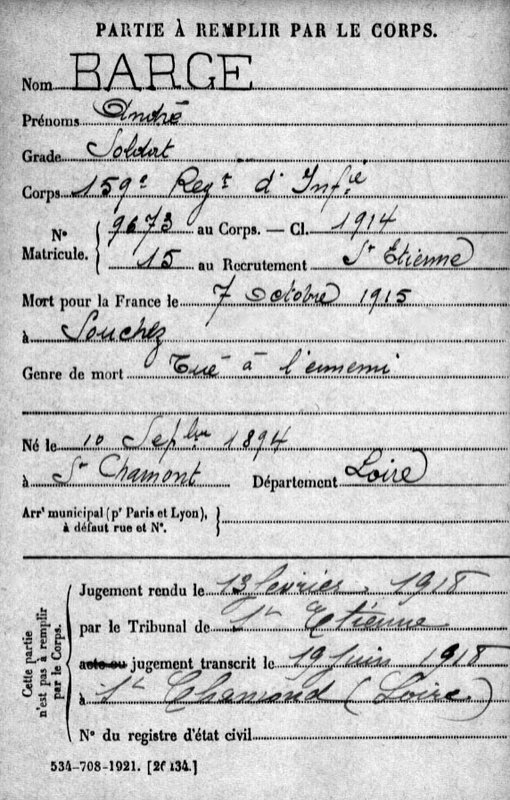 PARTIE À REMPLIR PAR LE CORPS.
Nom BARGE
Prénoms André
Grade Soldat
Corps 159e Regt d'Infie
No Matricule. 9673 au Corps. — Cl. 1914
15 au Recrutement St Etienne
Mort pour la France le 7 Octobre 1915
à Souchez
Genre de mort Tué à l'ennemi
Né le 10 Sepbre 1894
à St Chamont Département Loire
Arrt municipal (pr Paris et Lyon), à défaut rue et No.
Cette partie n'est pas à remplir par le Corps.
Jugement rendu le 13 fevrier 1918
par le Tribunal de St Etienne
acte ou jugement transcrit le 19 juin 1918
à St Chamond (Loire)
No du registre d'état civil
534-708-1921. [26434.]